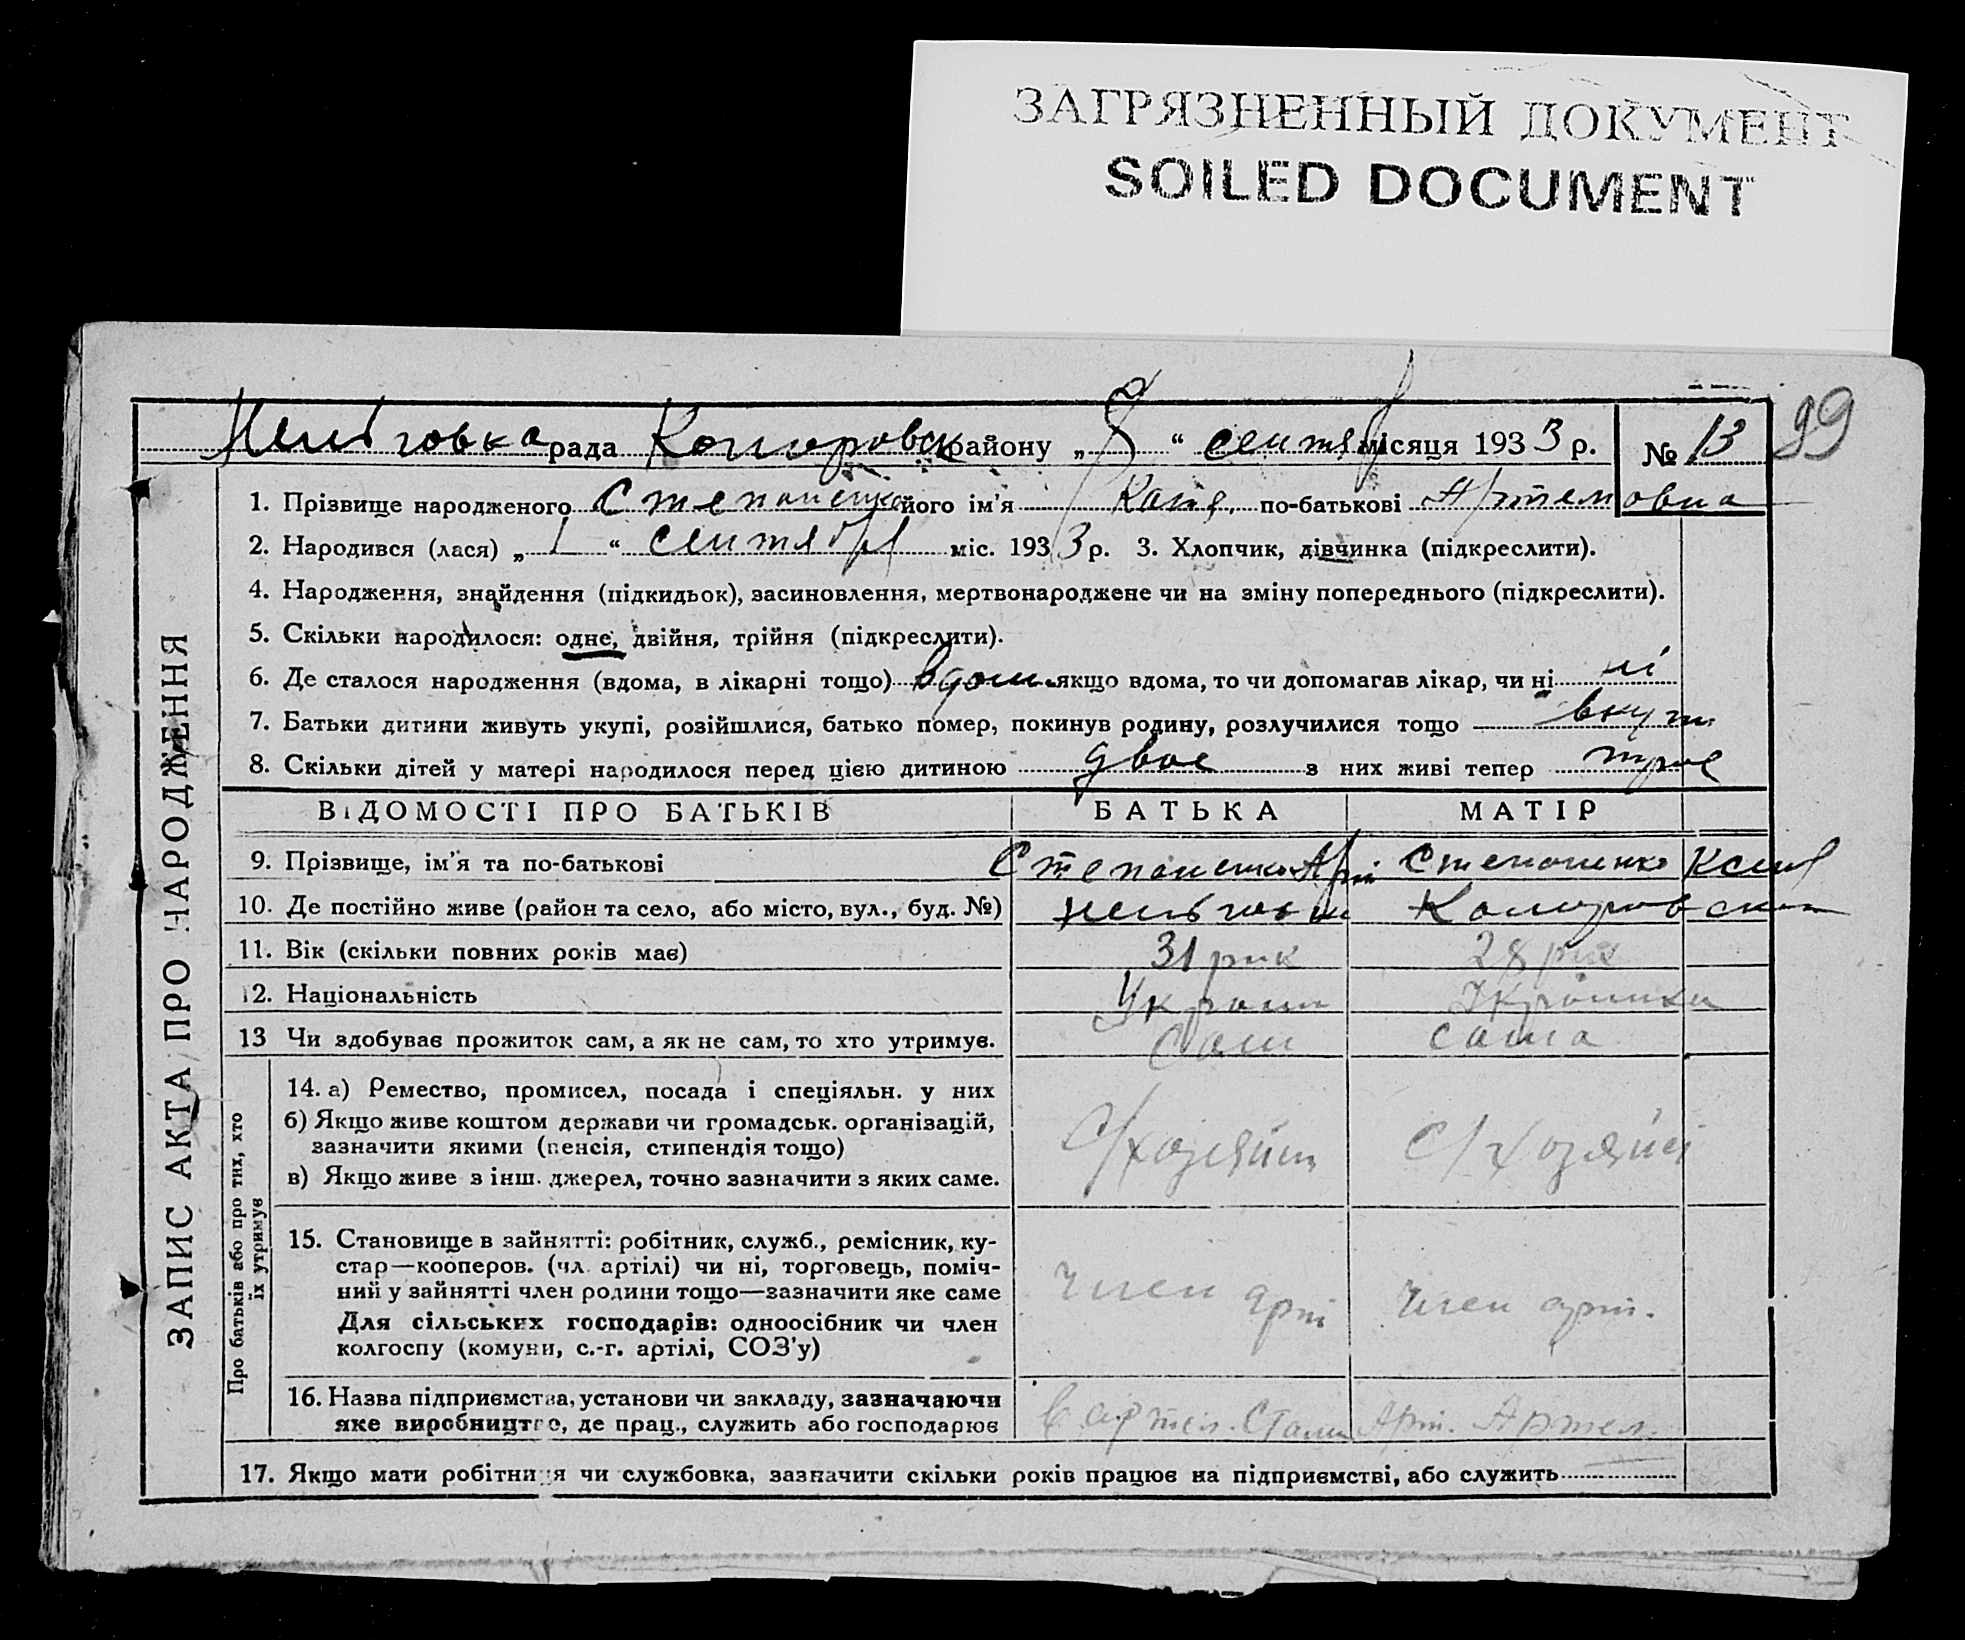 ЗАГРЯЗНЕННЫЙ ДОКУМЕНТ
SOILED DOCUMENT
99
рада району „ “ місяця 1933 р. № 13
1. Прізвище народженого Степаненко його ім'я Катя по-батькові Артемовна
2. Народився (лася) „ 1 “ сентября міс. 1933 р. 3. Хлопчик, дівчинка (підкреслити).
4. Народження, знайдення (підкидьок), засиновлення, мертвонароджене чи на зміну попереднього (підкреслити).
5. Скільки народилося: одне, двійня, трійня (підкреслити).
6. Де сталося народження (вдома, в лікарні тощо) вдома якщо вдома, то чи допомагав лікар, чи ні ні
7. Батьки дитини живуть укупі, розійшлися, батько помер, покинув родину, розлучилися тощо
8. Скільки дітей у матері народилося перед цією дитиною двое з них живі тепер
ВІДОМОСТІ ПРО БАТЬКІВ БАТЬКА МАТІР
9. Прізвище, ім'я та по-батькові Степаненко Арт Степаненко
10. Де постійно живе (район та село, або місто, вул., буд. №)
11. Вік (скільки повних років має) 31 рик 28 рик
12. Національність
13 Чи здобуває прожиток сам, а як не сам, то хто утримує. Сам сама
14. а) Ремество, промисел, посада і спеціяльн. у них
б) Якщо живе коштом держави чи громадськ. організацій,
зазначити якими (пенсія, стипендія тощо)
в) Якщо живе з інш. джерел, точно зазначити з яких саме.
15. Становище в зайнятті: робітник, служб., ремісник, ку-
стар—кооперов. (чл. артілі) чи ні, торговець, поміч-
ний у зайнятті член родини тощо—зазначити яке саме
Для сільських господарів: одноосібник чи член
колгоспу (комуни, с.-г. артілі, СОЗ'у)
член арт член арт.
16. Назва підприємства, установи чи закладу, зазначаючи
яке виробництво, де прац., служить або господарює
17. Якщо мати робітниця чи службовка, зазначити скільки років працює на підприємстві, або служить
ЗАПИС АКТА ПРО НАРОДЖЕННЯ
Про батьків або про тих, хто
їх утримує